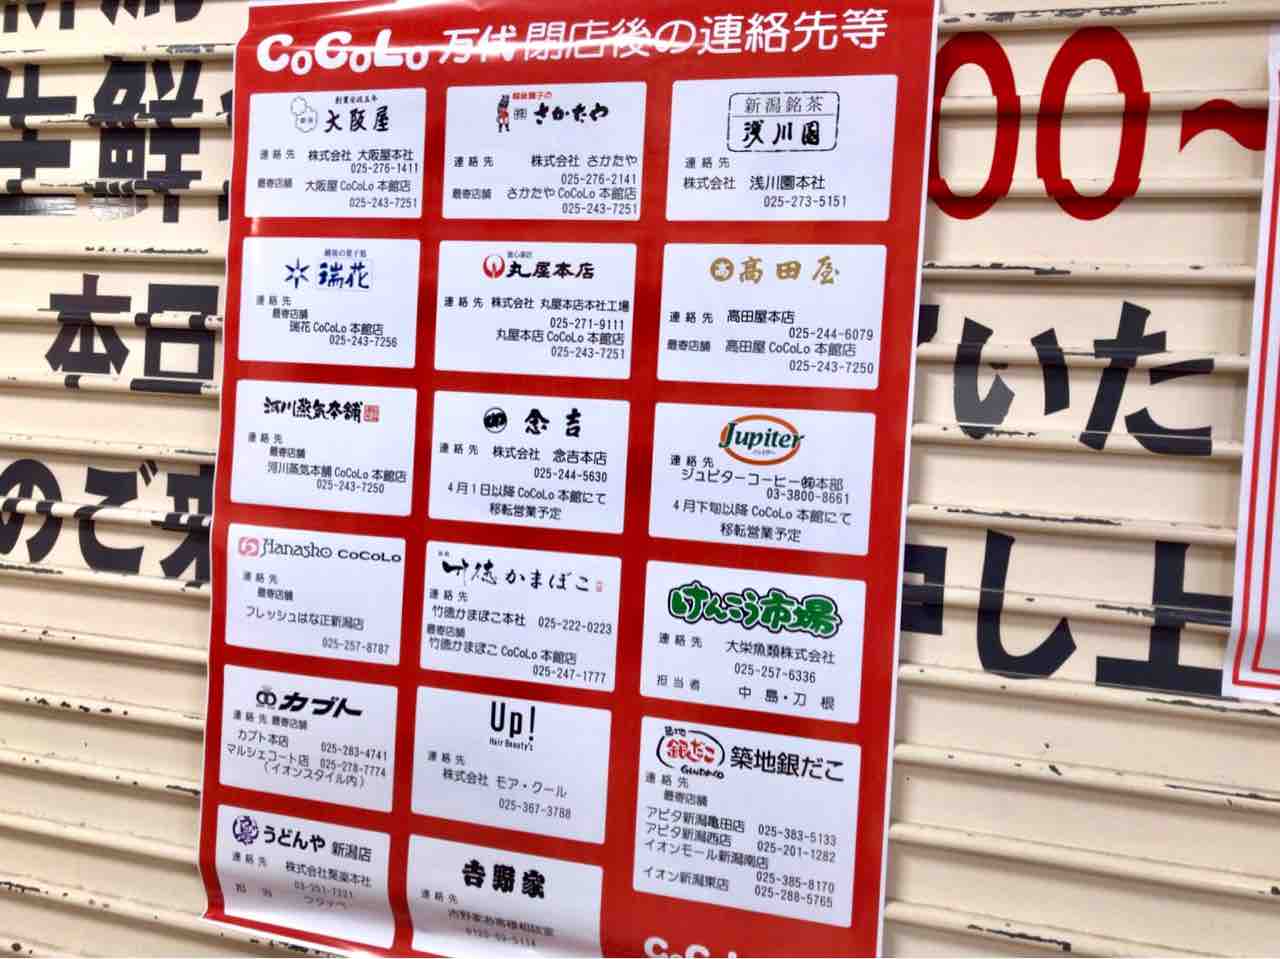 CoCoLo 万代 閉店後の連絡先等
創業安政五年
大阪屋
連絡先 株式会社 大阪屋本社
025-276-1411
最寄店舗 大阪屋 CoCoLo 本館店
025-243-7251
越後獅子の
さかたや
連絡先 株式会社 さかたや
025-276-2141
最寄店舗 さかたや CoCoLo 本館店
025-243-7251
新潟銘茶
浅川園
連絡先
株式会社 浅川園本社
025-273-5151
越後の菓子処
瑞花
連絡先
最寄店舗
瑞花 CoCoLo 本館店
025-243-7256
丸屋本店
連絡先 株式会社 丸屋本店本社工場
025-271-9111
丸屋本店 CoCoLo 本館店
025-243-7251
高田屋
連絡先 高田屋本店
025-244-6079
最寄店舗 高田屋 CoCoLo 本館店
025-243-7250
河川蒸気本舗
連絡先
最寄店舗
河川蒸気本舗 CoCoLo 本館店
025-243-7250
念吉
連絡先 株式会社 念吉本店
025-244-5630
4月1日以降 CoCoLo 本館にて
移転営業予定
Jupiter
連絡先
ジュピターコーヒー㈱本部
03-3800-8661
4月下旬以降 CoCoLo 本館にて
移転営業予定
Hanasho CoCoLo
連絡先
最寄店舗
フレッシュはな正新潟店
025-257-8787
竹徳かまぼこ
連絡先
竹徳かまぼこ本社 025-222-0223
最寄店舗
竹徳かまぼこ CoCoLo 本館店
025-247-1777
けんこう市場
連絡先 大栄魚類株式会社
025-257-6336
担当者 中島・刀根
カブト
連絡先 最寄店舗
カブト本店 025-283-4741
マルシェコート店 025-278-7774
(イオンスタイル内)
Up!
Hair Beauty's
連絡先
株式会社 モア・クール
025-367-3788
築地
銀だこ
GINDACO
築地銀だこ
連絡先
最寄店舗
アピタ新潟亀田店 025-383-5133
アピタ新潟西店 025-201-1282
イオンモール新潟南店
025-385-8170
イオン新潟東店 025-288-5765
うどんや 新潟店
連絡先 株式会社聚楽本社
担当
吉野家
連絡先
吉野家お客様相談室
CoCoLo
生鮮
00～
本日
いた
のご来
し上